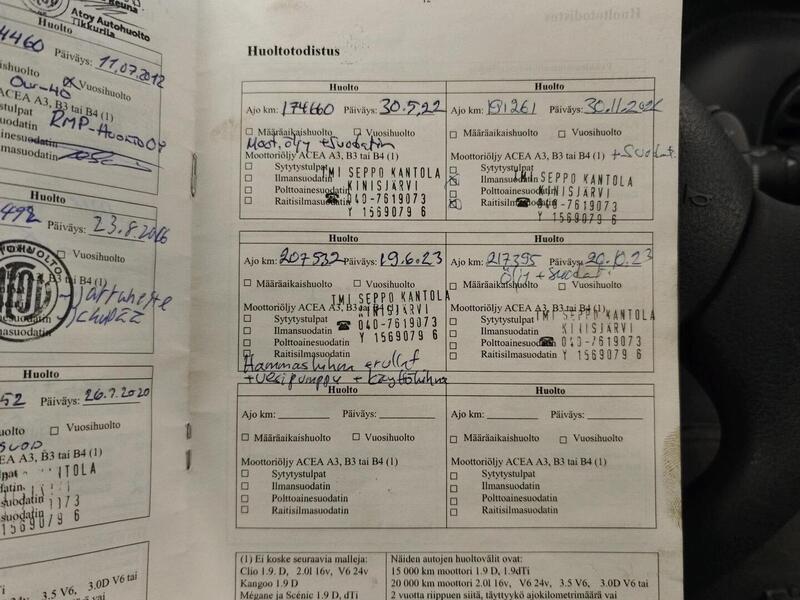 Atoy Autohuolto
Tikkurila
4460 Päiväys: 11.07.2012
Vuosihuolto
ACEA A3, B3 tai B4 (1)
RMP-HUOLTO OY
Huolto
492 Päiväys: 23.8.2016
Huolto
Päiväys: 26.7.2020
Vuosihuolto
ACEA A3, B3 tai B4 (1)
Huolto
Huoltotodistus
Huolto
Ajo km: 174660 Päiväys: 30.5.22
Määräaikaishuolto Vuosihuolto
Moot.öljy + suodatin
Moottoriöljy ACEA A3, B3 tai B4 (1)
Sytytystulpat
Ilmansuodatin
Polttoainesuodatin
Raitisilmasuodatin
TMI SEPPO KANTOLA
KINISJÄRVI
☎ 040-7619073
Y 1569079 6
Huolto
Ajo km: 191261 Päiväys: 30.11.2022
Määräaikaishuolto Vuosihuolto
Moottoriöljy ACEA A3, B3 tai B4 (1) + Suodat.
Sytytystulpat
Ilmansuodatin
Polttoainesuodatin
Raitisilmasuodatin
TMI SEPPO KANTOLA
KINISJÄRVI
☎ 040-7619073
Y 1569079 6
Huolto
Ajo km: 207532 Päiväys: 19.6.23
Määräaikaishuolto Vuosihuolto
Moottoriöljy ACEA A3, B3 tai B4 (1)
Sytytystulpat
Ilmansuodatin
Polttoainesuodatin
Raitisilmasuodatin
TMI SEPPO KANTOLA
KINISJÄRVI
☎ 040-7619073
Y 1569079 6
Hammashihna rullat
+ vesipumppu + käyttöhihna
Huolto
Ajo km: 217395 Päiväys: 20.10.23
Öljy + Suodat.
Määräaikaishuolto Vuosihuolto
Moottoriöljy ACEA A3, B3 tai B4 (1)
Sytytystulpat
Ilmansuodatin
Polttoainesuodatin
Raitisilmasuodatin
TMI SEPPO KANTOLA
KINISJÄRVI
☎ 040-7619073
Y 1569079 6
Huolto
Ajo km: Päiväys:
Määräaikaishuolto Vuosihuolto
Moottoriöljy ACEA A3, B3 tai B4 (1)
Sytytystulpat
Ilmansuodatin
Polttoainesuodatin
Raitisilmasuodatin
Huolto
Ajo km: Päiväys:
Määräaikaishuolto Vuosihuolto
Moottoriöljy ACEA A3, B3 tai B4 (1)
Sytytystulpat
Ilmansuodatin
Polttoainesuodatin
Raitisilmasuodatin
(1) Ei koske seuraavia malleja:
Clio 1.9. D, 2.0l 16v, V6 24v
Kangoo 1.9 D
Mégane ja Scénic 1.9 D, dTi
Näiden autojen huoltovälit ovat:
15 000 km moottori 1.9 D, 1.9dTi
20 000 km moottori 2.0l 16v, V6 24v, 3.5 V6, 3.0D V6 tai
2 vuotta riippuen siitä, täyttyykö ajokilometrimäärä vai